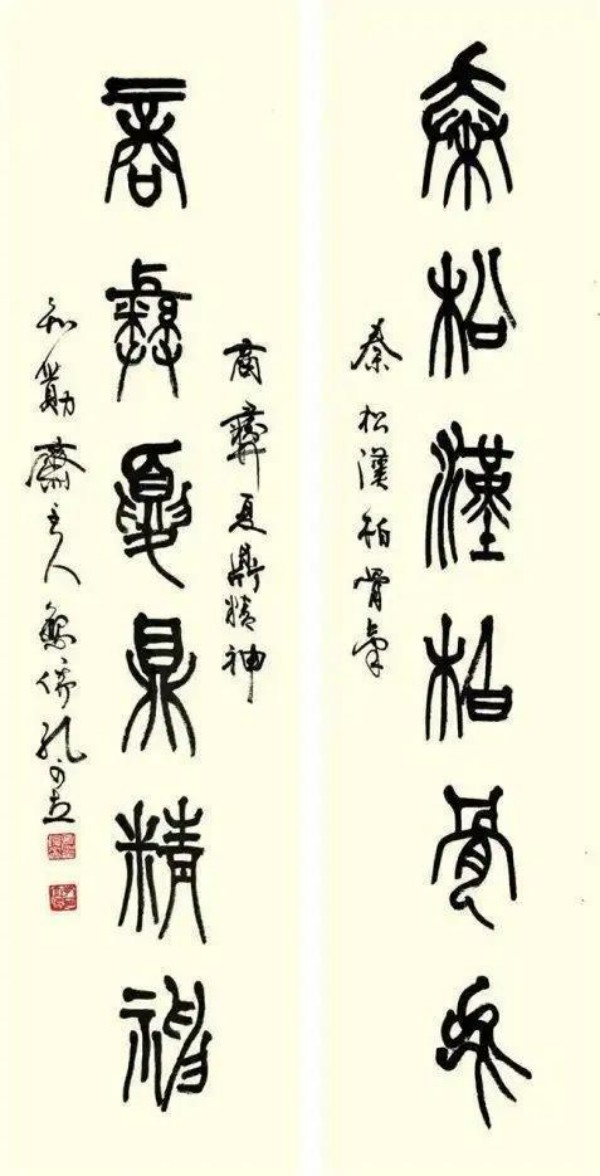 秦松漢柏骨氣
秦松漢柏骨氣
商彝夏鼎精神
商彝夏鼎精神
齋主人魯儒孔可立